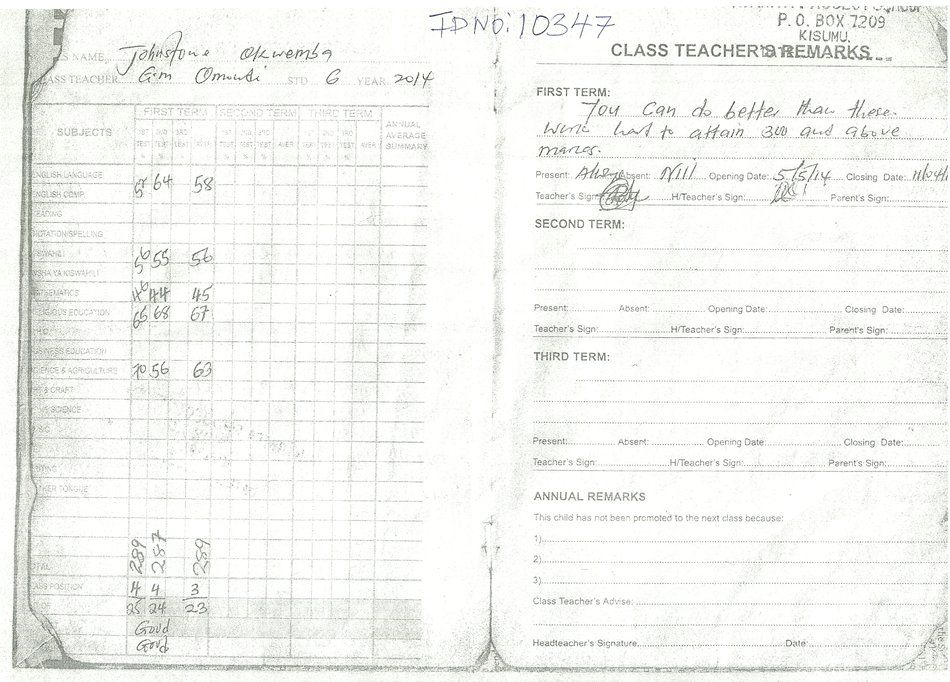 IDNO: 10347
P. O. BOX 7209
KISUMU.
NAME Johnstone Okwemba
CLASS TEACHER Gim Omondi STD 6 YEAR 2014
SUBJECTS
FIRST TERM SECOND TERM THIRD TERM
ANNUAL AVERAGE SUMMARY
1ST TEST % 2ND TEST % 3RD TEST AVER 1ST TEST % 2ND TEST % 3RD TEST AVER TEST 2ND TEST 3RD TEST % AVER
ENGLISH LANGUAGE 64 58
ENGLISH COMP.
READING
DICTATION/SPELLING
KISWAHILI 56 55 56
INSHA YA KISWAHILI
MATHEMATICS 46 44 45
RELIGIOUS EDUCATION 65 68 67
BUSINESS EDUCATION
SCIENCE & AGRICULTURE 70 56 63
& CRAFT
SCIENCE
MOTHER TONGUE
TOTAL 289 287 289
CLASS POSITION 4 4 3
25 24 23
Good
Good
CLASS TEACHER'S REMARKS
FIRST TERM:
You can do better than these.
Work hard to attain 300 and above
marks.
Present: Absent: Nill Opening Date: 5/5/14 Closing Date:
Teacher's Sign: H/Teacher's Sign: Parent's Sign:
SECOND TERM:
Present: Absent: Opening Date: Closing Date:
Teacher's Sign: H/Teacher's Sign: Parent's Sign:
THIRD TERM:
Present: Absent: Opening Date: Closing Date:
Teacher's Sign: H/Teacher's Sign: Parent's Sign:
ANNUAL REMARKS
This child has not been promoted to the next class because:
1)
2)
3)
Class Teacher's Advise:
Headteacher's Signature Date: